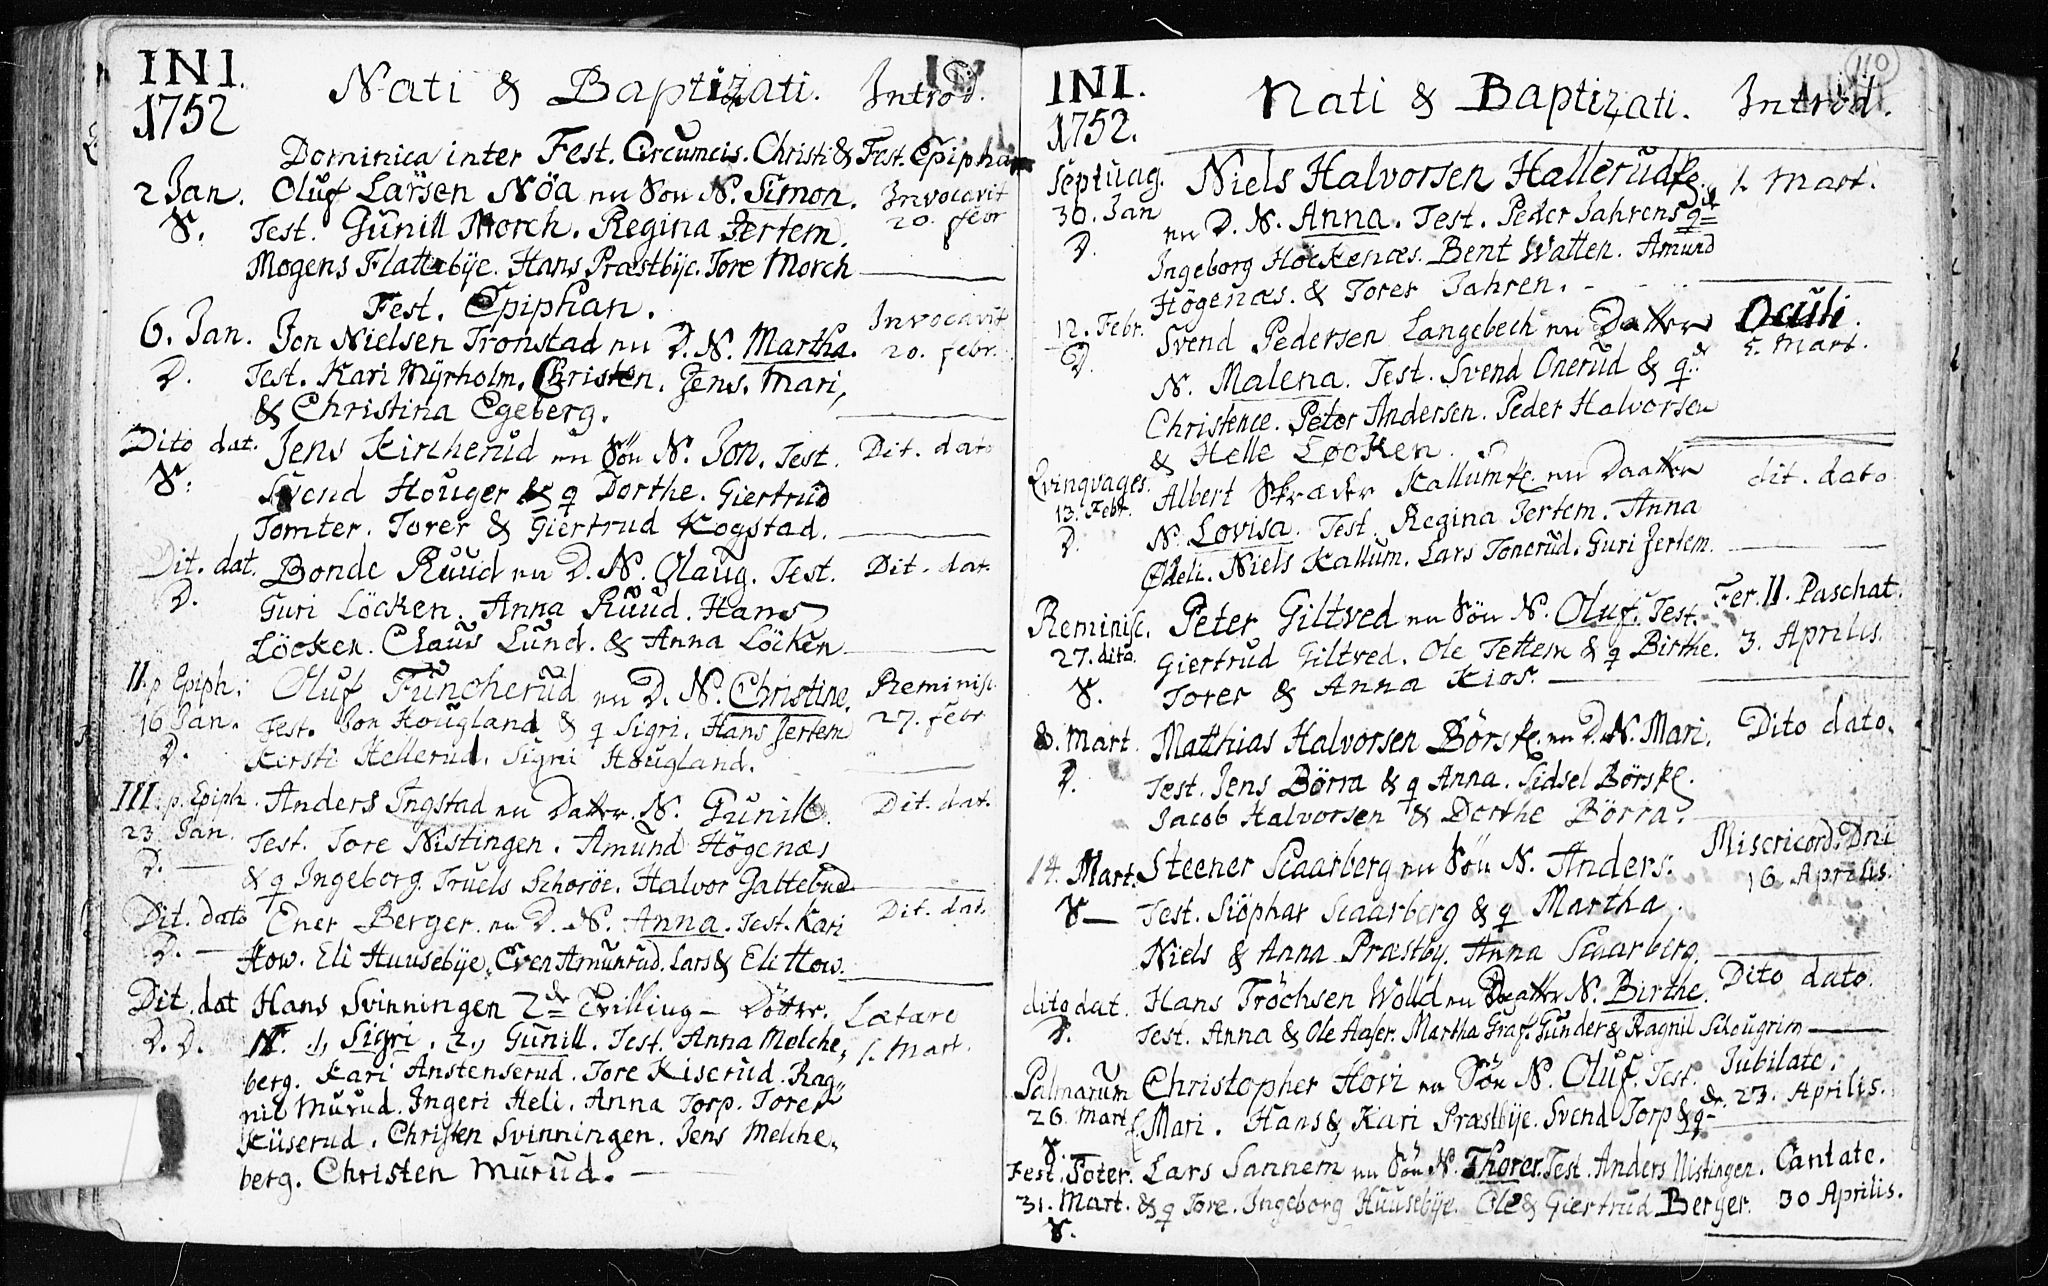 INI.
1752
Nati & Baptizati.
Introd.
Dominica inter Fest. Circumcis. Christi & Fest. Epiphan
2 Jan. Oluf Larsen Nöa nu Sön N. Simon. Invocavit
S. Test. Gunill Morch. Regina Jertem. 20. febr
Mogens Flattebÿe. Hans Præstbÿe. Tore Morch
Fest. Epiphan.
6. Jan. Jon Nielsen Tronstad nu D. N. Martha. Invocavit
D. Test. Kari Mÿrholm. Christen. Jens. Mari, 20. febr.
& Christina Egeberg.
Dito dat. Jens Kircherud nu Sön N. Jon. Test. Dit. dato
S. Svend Houger & q Dorthe. Giertrud
Tomter. Torer & Giertrud Kogstad.
Dit. dat. Bonde Ruud nu D. N. Olaug. Test. Dit. dat.
D. Guri Löcken. Anna Ruud. Hans
Löcken. Claus Lund. & Anna Löcken
II. p Epiph. Oluf Funcherud nu D. N. Christine. Reminisc.
16 Jan. Test. Jon Hougland & q Sigri. Hans Jertem 27. febr
D. Kersti Hellerud. Sigri Hougland.
III. p. Epiph. Anders Ingstad nu Datter N. Gunill. Dit. dat.
23. Jan. Test. Tore Nistingen. Amund Högenæs
D. & q Ingeborg. Truels Schoröe. Halvor Jattebud.
Dit. dato Ener Berger. nu D. N. Anna. Test. Kari Dit. dat.
D. How. Eli Huusebÿe. Even Amunrud. Lars & Eli How.
Dit. dat Hans Svinningen 2de Tvilling- Döttr. Lætare
D. D. N. 1, Sigri. 2, Gunill. Test. Anna Melche, 1. Mart.
berg. Kari Anstenserud. Tore Kiserud. Rag,,
nil Murud. Ingeri Heli. Anna Torp. Torer
Küserud. Christen Svinningen. Jens Melche,
berg. Christen Murud.
110
INI.
1752.
Nati & Baptizati.
Introd.
Septuag. Niels Halvorsen Hallerudp. 1. Mart.
30. Jan nu D. N. Anna. Test. Peder Jahren & q
D. Ingeborg Höckenæs. Bent Watten. Amund
Högenæs. & Torer Jahren.
12. Febr. Svend Pedersen Langebech nu Datter Oculi.
D. N. Malena. Test. Svend Onerud & q. 5. Mart.
Christence. Peter Andersen. Peder Halvorsen
& Helle Løcken.
Qvinqvages. Albert Skræder Kallumf. nu Daatter dit. dato
13. Febr. N. Lovisa. Test. Regina Jertem. Anna
D. Ødeli. Niels Kallum. Lars Tonerud. Guri Jertem.
Reminisc. Peter Giltved nu Sön N. Oluf. Test. Fer. II. Paschat.
27. dito. Giertrud Giltved. Ole Tettem & q Birthe. 3. Aprilis.
S. Torer & Anna Kios.
8. Mart. Matthias Halvorsen Börsf. nu D. N. Mari. Dito dato.
D. Test. Jens Börra & q Anna. Sidsel Börsf.
Jacob Halvorsen & Dorthe Börra.
14. Mart. Steener Scaarberg nu Sön N. Anders. Misericord. Dni
S- Test. Siöphar Scaarberg & q Martha. 16 Aprilis.
Niels & Anna Præstby. Anna Scaarberg.
dito dat. Hans Tröchsen Wolld nu Daatter N. Birthe. Dito dato.
D. Test. Anna & Ole Haser. Martha Graf. Gunder & Ragnil Schougrim
Palmarum Christopher Hovi nu Sön N. Oluf. Test. Jubilate.
26. Mart Mari. Hans & Kari Præstbÿe. Svend Torp & q 23. Aprilis.
S.
Fest. Lars Sannem nu Sön N. Thorer. Test. Anders Nistingen. Cantate.
31. Mart. & q Tore. Ingeborg Huusebÿe. Ole & Giertrud Berger. 30 Aprilis.
S.